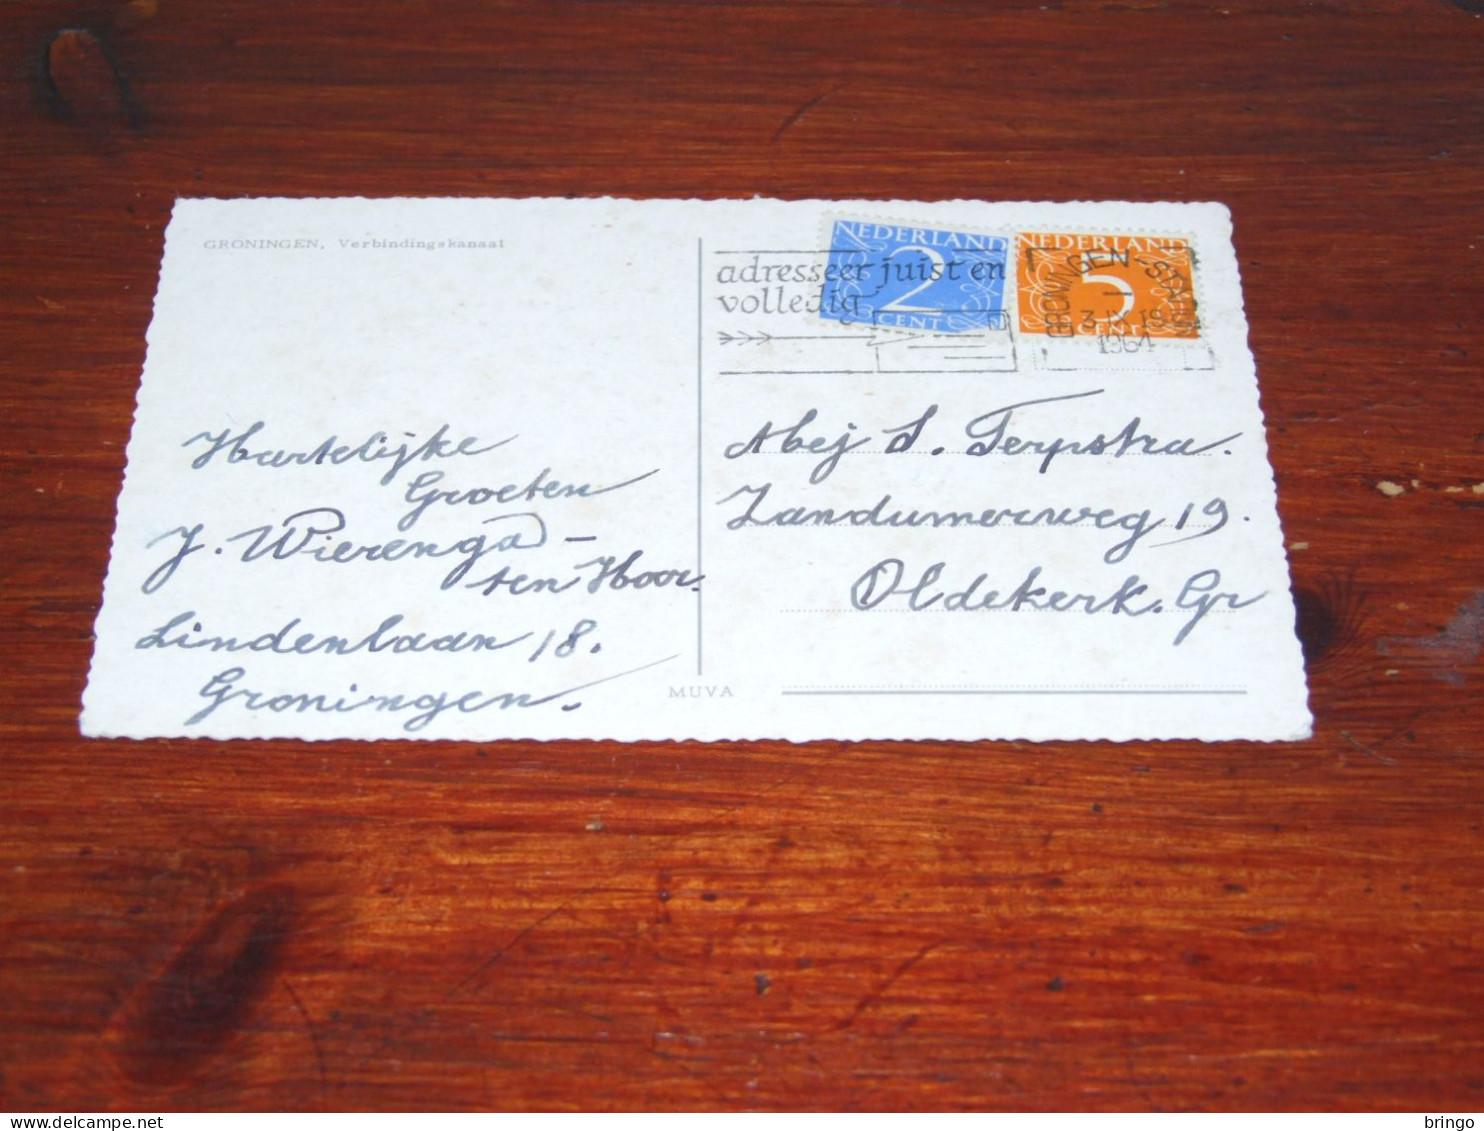 GRONINGEN, Verbindingskanaal
NEDERLAND
2
CENT
NEDERLAND
5
CENT
adresseer juist en
volledig
GRONINGEN-STA
3 IX 18
1964
Hartelijke
Groeten
J. Wierenga -
ten Hoor.
Lindenlaan 18.
Groningen.
Abej S. Terpstra.
Zandumerweg 19.
Oldekerk. Gr
MUVA
delcampe.net
bringo